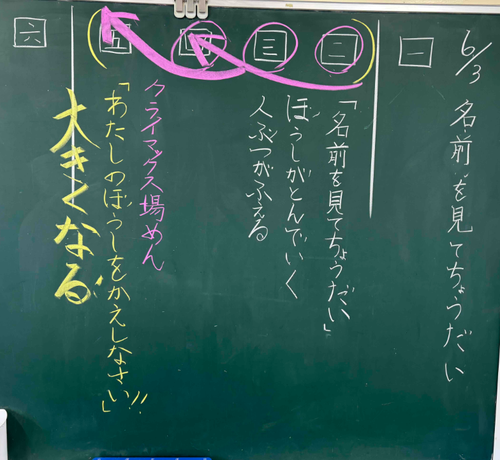 6/3 名前を見てちょうだい
一
二
三
四
五
六
「名前を見てちょうだい」
ぼうしがとんでいく
人ぶつがふえる
クライマックス場めん
「あたしのぼうしをかえしなさい」!!
大きくなる